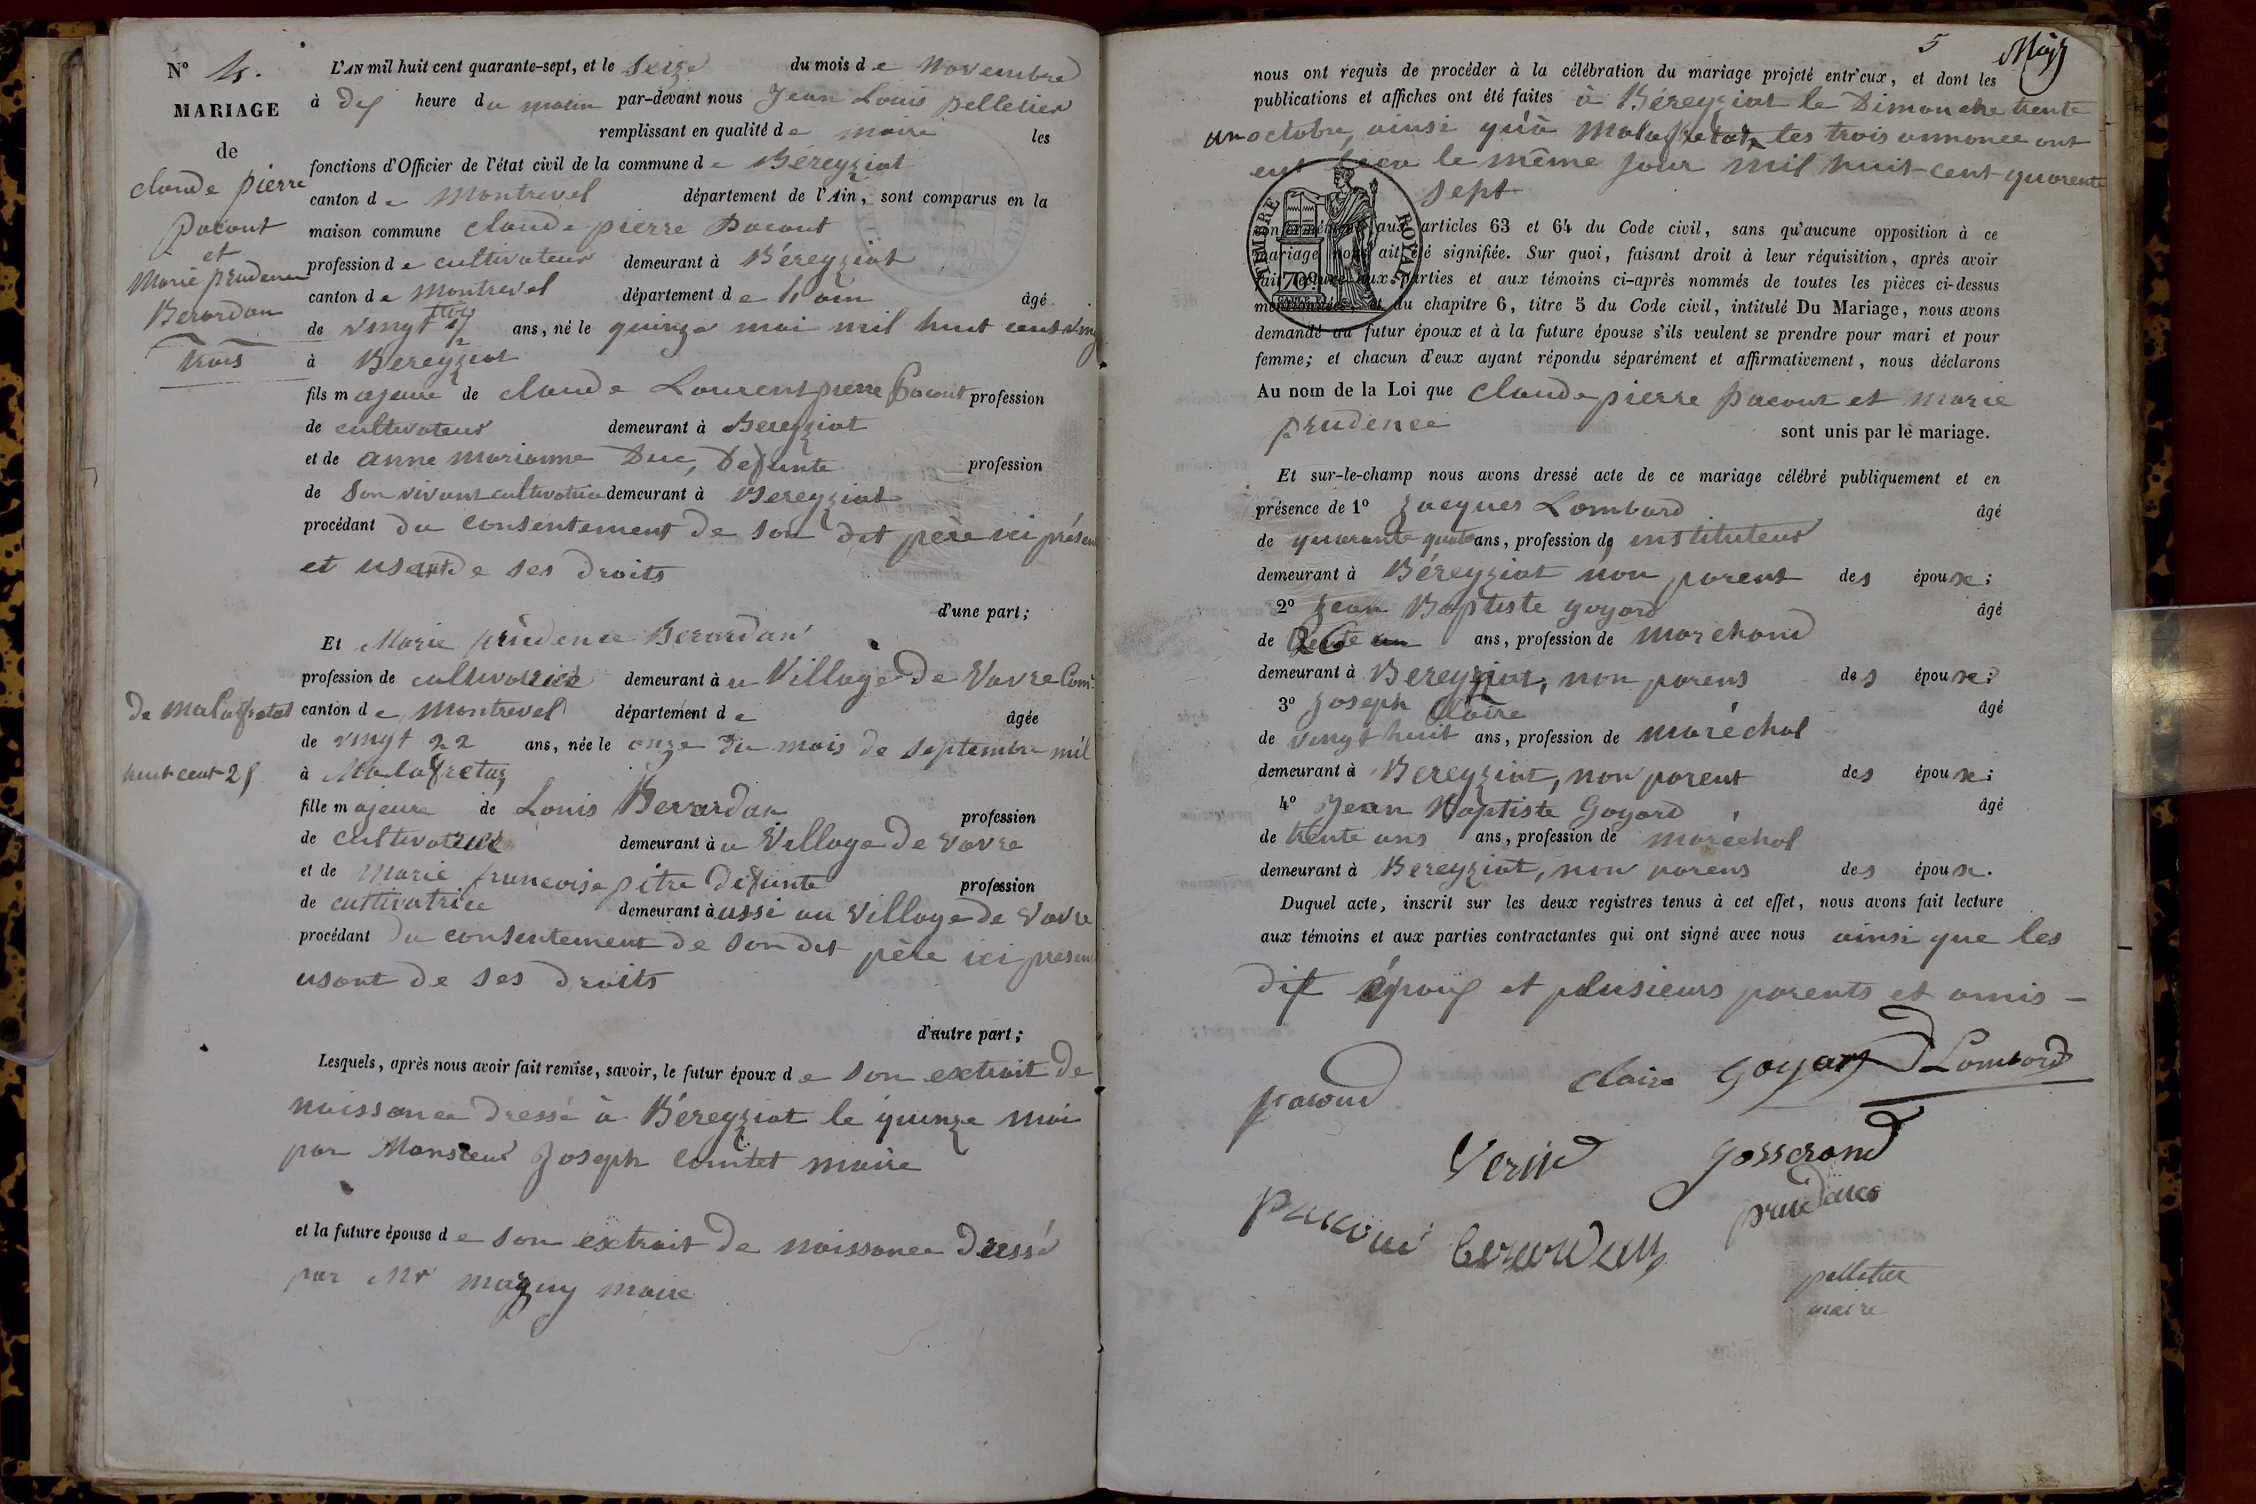 N° 4.
MARIAGE
de
claude pierre
Pacout
et
Marie prudence
Berardan
trois
L'AN mil huit cent quarante-sept, et le seize du mois de Novembre
à dix heure du matin par-devant nous Jean Louis pelletier
remplissant en qualité de maire les
fonctions d'Officier de l'état civil de la commune de Béreyziat
canton de Montrevel département de l'Ain, sont comparus en la
maison commune claude pierre Pacout
profession de cultivateur demeurant à Béreyziat
canton de Montrevel département de l'ain âgé
de vingt ans, né le quinze mai mil huit cent
à Bereyziat
fils majeure de claude Laurent pierre Pacout profession
de cultivateur demeurant à Bereyziat
et de anne marianne Duc, Defunte profession
de son vivant cultivatrice demeurant à Bereyziat
procédant du consentement de son dit père ici présent
et usant de ses droits
d'une part;
Et Marie prudence Berardan
profession de cultivatrice demeurant à u Village de Vavre Com.
de malafretat canton de Montrevel département de âgée
de vingt 22 ans, née le onze du mois de septembre mil
huit cent 25 à Malafretaz
fille majeure de Louis Berardan profession
de cultivateur demeurant à u Village de Vavre
et de Marie francoise pitre defunte profession
de cultivatrice demeurant à ussi au Village de Vavre
procédant du consentement de son dit père ici present
usant de ses droits
d'autre part;
Lesquels, après nous avoir fait remise, savoir, le futur époux de son extrait de
naissance dressé à Béreyziat le quinze mai
par Monsieur Joseph comtet maire
et la future épouse de son extrait de naissance dressé
par Mr maire
5
nous ont requis de procéder à la célébration du mariage projeté entr'eux, et dont les
publications et affiches ont été faites à Béreyziat le Dimanche trente
un octobre, ainsi qu'à Malafretat, les trois annonce ont
eut lieu le même jour mil huit cent quarente
sept
TIMBRE ROYAL
70c.
conformément aux articles 63 et 64 du Code civil, sans qu'aucune opposition à ce
mariage nous ait été signifiée. Sur quoi, faisant droit à leur réquisition, après avoir
fait lecture aux parties et aux témoins ci-après nommés de toutes les pièces ci-dessus
mentionnées, et du chapitre 6, titre 5 du Code civil, intitulé Du Mariage, nous avons
demandé au futur époux et à la future épouse s'ils veulent se prendre pour mari et pour
femme; et chacun d'eux ayant répondu séparément et affirmativement, nous déclarons
Au nom de la Loi que claude pierre pacout et marie
prudence sont unis par le mariage.
Et sur-le-champ nous avons dressé acte de ce mariage célébré publiquement et en
présence de 1° Jacques Lombard âgé
de quarante quatre ans, profession de instituteur
demeurant à Béreyziat non parent des époux;
2° Jean Baptiste goyard âgé
de ans, profession de marchand
demeurant à Bereyziat, non parens des époux;
3° Joseph Claire âgé
de vingt huit ans, profession de maréchal
demeurant à Bereyziat, non parent des époux;
4° Jean Baptiste Goyard âgé
de trente ans ans, profession de maréchal
demeurant à Bereyziat, non parens des époux.
Duquel acte, inscrit sur les deux registres tenus à cet effet, nous avons fait lecture
aux témoins et aux parties contractantes qui ont signé avec nous ainsi que les
dit époux et plusieurs parents et amis -
pacoud Claire Goyard Lombard
Gosserand
prudence
berardan
pelletier
maire